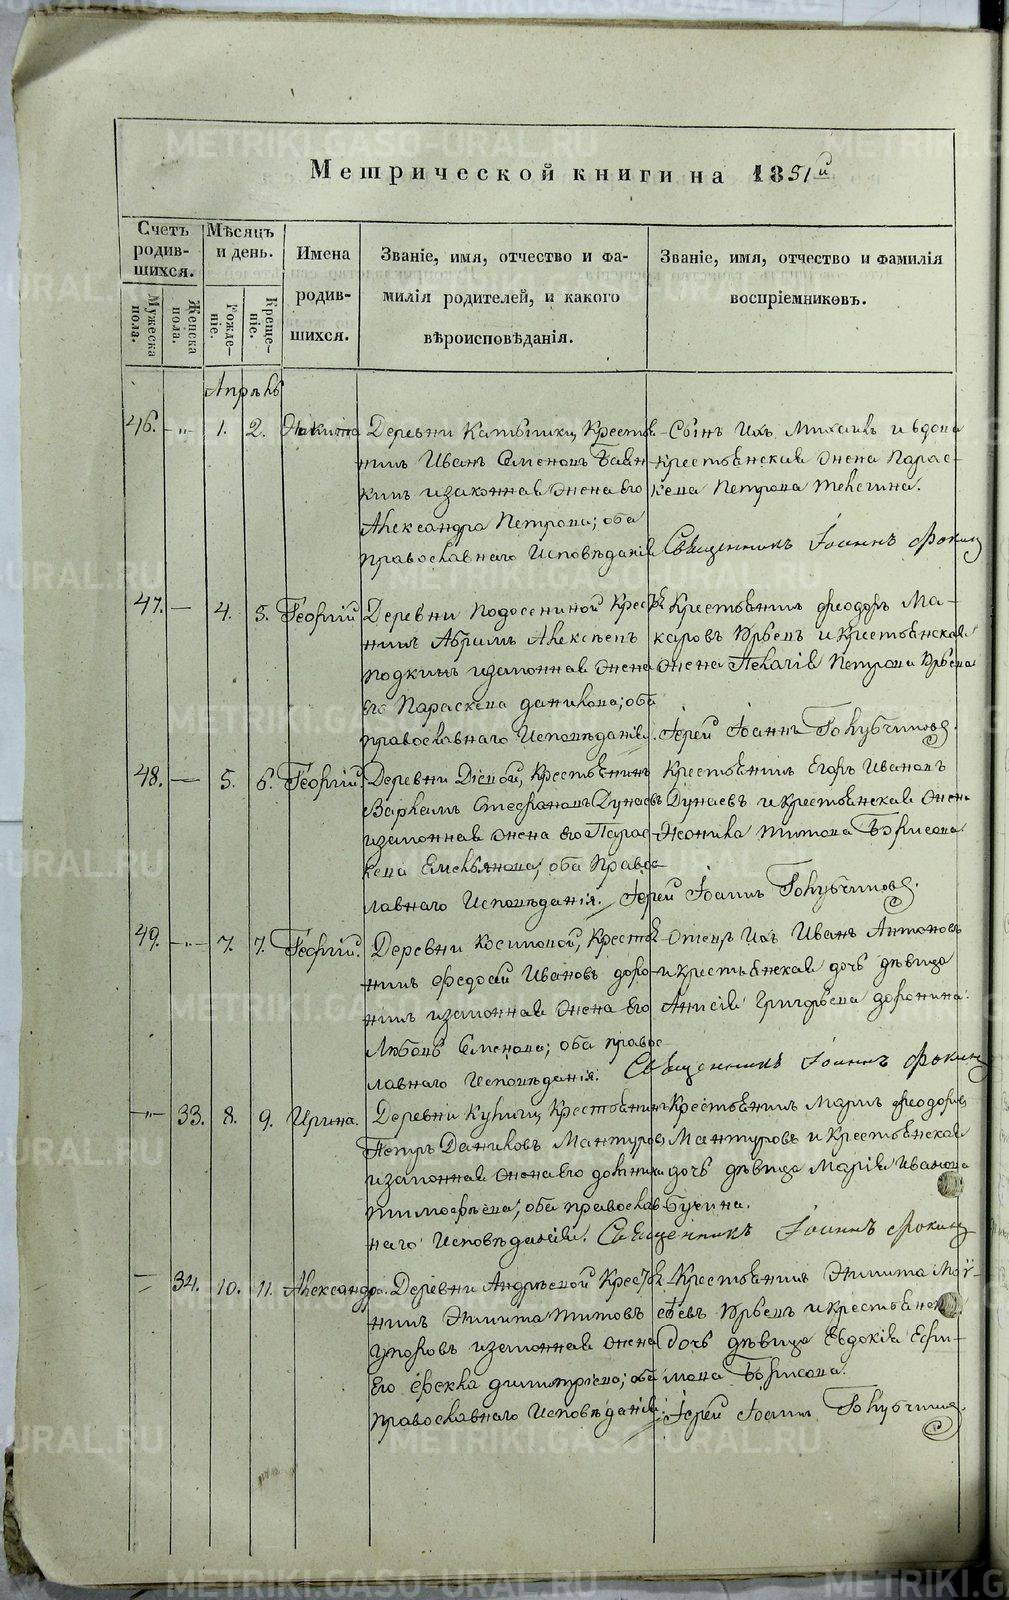 Метрической книги на 1851й
Счетъ родившихся.
Мужеска пола.
Женска пола.
Мѣсяцъ и день.
Рожденіе.
Крещеніе.
Имена родившихся.
Званіе, имя, отчество и фамилія родителей, и какого вѣроисповѣданія.
Званіе, имя, отчество и фамилія воспріемниковъ.
Апрѣль
46. 1. 2. Никита
Деревни Крестья-
нинъ Иванъ Семеновъ
и законная жена его
Александра Петрова; оба
православнаго исповѣданія
Сынъ ихъ Михаилъ и вдова
крестьянская жена Парас-
кева Петрова Телегина.
Священникъ Іоаннъ Фокинъ
47. 4. 5. Георгій
Деревни Подосениной Кресть-
нинъ Абрамъ Алексѣевъ
и законная жена
его Параскева Данилова; оба
православнаго исповѣданія.
Крестьянинъ Феодоръ Ма-
каровъ и крестьянская
жена Пелагія Петрова
Іерей Іоаннъ Голубчиковъ.
48. 5. 6. Георгій.
Деревни Крестьянинъ
Варламъ Стефановъ Дунаевъ
и законная жена его Парас-
кева Емельянова; оба право-
славнаго исповѣданія.
Крестьянинъ Егоръ Ивановъ
Дунаевъ и крестьянская жена
Титова Борисова
Іерей Іоаннъ Голубчиковъ.
49. 7. 7. Георгій.
Деревни Косиковой, Кресть-
нинъ Федосій Ивановъ Доро-
нинъ и законная жена его
Любовь Семенова; оба право-
славнаго исповѣданія.
Отецъ ихъ Иванъ Антоновъ
и крестьянская дочь дѣвица
Анисія Григорьева Доронина.
Священникъ Іоаннъ Фокинъ
33. 8. 9. Ирина.
Деревни Крестьянинъ
Петръ Даниловъ Мантуровъ
и законная жена его Домника
Тимофѣева; оба православ-
наго исповѣданія.
Крестьянинъ Феодоровъ
Мантуровъ и крестьянская
дочь дѣвица Марія Иванова
Бучина.
Священникъ Іоаннъ Фокинъ
34. 10. 11. Александра.
Деревни Андрѣевой Кресть-
нинъ Никита Титовъ
и законная жена
его Фекла Димитріева; оба
православнаго исповѣданія.
Крестьянинъ Никита Мои-
сеевъ и крестьянская
дочь дѣвица Евдокія Ефи-
мова Борисова.
Іерей Іоаннъ Голубчиковъ.
METRIKI.GASO-URAL.RU